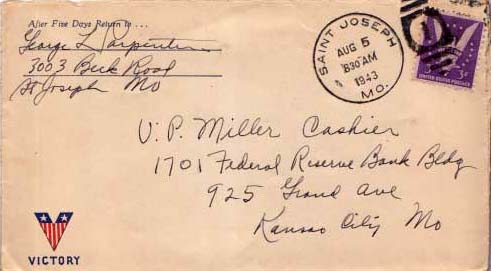 After Five Days Return to . . .
George L Carpenter
3003 Beck Road
St Joseph Mo
SAINT JOSEPH
AUG 5
830 AM
1943
MO.
1
3¢ 3¢
UNITED STATES POSTAGE
V. P. Miller Cashier
1701 Federal Reserve Bank Bldg
925 Grand Ave
Kansas City Mo
VICTORY